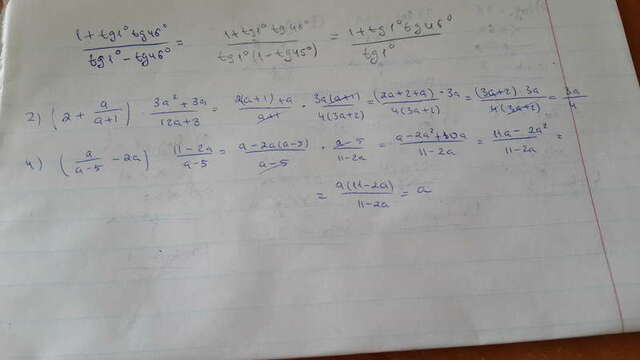 (1 + tg1° tg46°)/(tg1° - tg46°) = (1 + tg1° tg46°)/(tg1°(1 - tg45°)) = (1 + tg1° tg46°)/(tg1°)
2) (2 + a/(a+1)) · (3a² + 3a)/(12a+8) = (2(a+1)+a)/(a+1) · (3a(a+1))/(4(3a+2)) = ((2a+2+a) · 3a)/(4(3a+2)) = ((3a+2) · 3a)/(4(3a+2)) = 3a/4
4) (a/(a-5) - 2a) (11-2a)/(a-5) = (a-2a(a-5))/(a-5) · (a-5)/(11-2a) = (a-2a²+10a)/(11-2a) = (11a-2a²)/(11-2a) =
= (a(11-2a))/(11-2a) = a